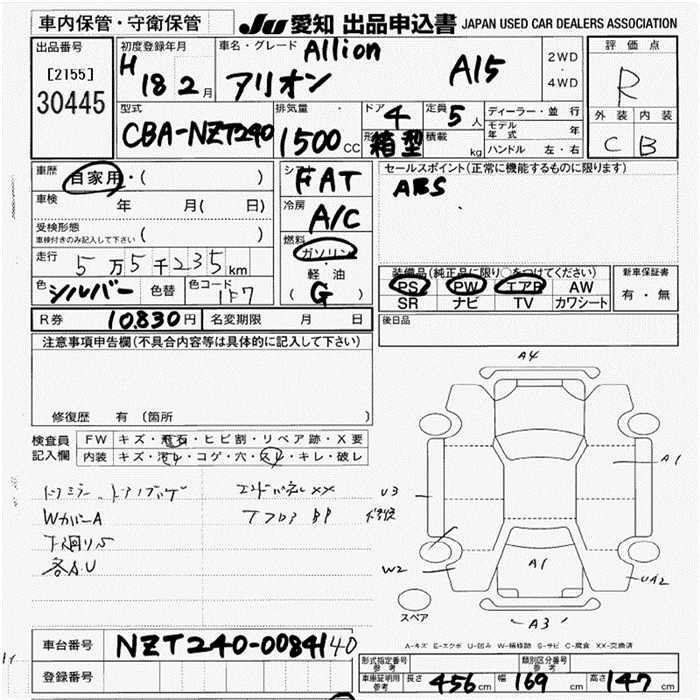 車内保管・守衛保管
JU 愛知 出品申込書 JAPAN USED CAR DEALERS ASSOCIATION
出品番号
[2155]
30445
初度登録年月
H 18 2月
車名・グレード
Allion
アリオン A15
2WD
・
4WD
評価点
R
外装 内装
C B
型式
CBA-NZT240
排気量
1500 CC
ドア
4
定員
5 人
箱型
積載
kg
ディーラー・並行
モデル年式 年
ハンドル 左・右
車歴
自家用・( )
車検 年 月( 日)
受検形態
車検付きのみ記入して下さい ( )
走行
5万5千235km
色
シルバー 色替 色コード 1F7
シフト
FAT
冷房
A/C
燃料
ガソリン
・
軽油
( G )
セールスポイント(正常に機能するものに限ります)
ABS
装備品(純正品に限り○をつけてください)
PS PW エアB AW
SR ナビ TV カワシート
新車保証書
有・無
R券 10.830円 名変期限 月 日
後日品
注意事項申告欄(不具合内容等は具体的に記入して下さい)
修復歴 有 (箇所 )
検査員
記入欄
FW キズ・飛石・ヒビ割・リペア跡・X要
内装 キズ・汚レ・コゲ・穴・スレ・キレ・破レ
WカバーA
下廻りS
各A.U
エンドパネルXX
TフロアBP
A4
A1
U3
W2
A1
UA2
A3
スペア
A-キズ E-エクボ U-凹み W-補修跡 S-サビ C-腐食 XX-交換済
車台番号 NZT240-0084140
登録番号
型式指定番号
参考
類別区分番号
参考
車庫証明用
参考
長さ 456 cm 幅 169 cm 高さ 147 cm